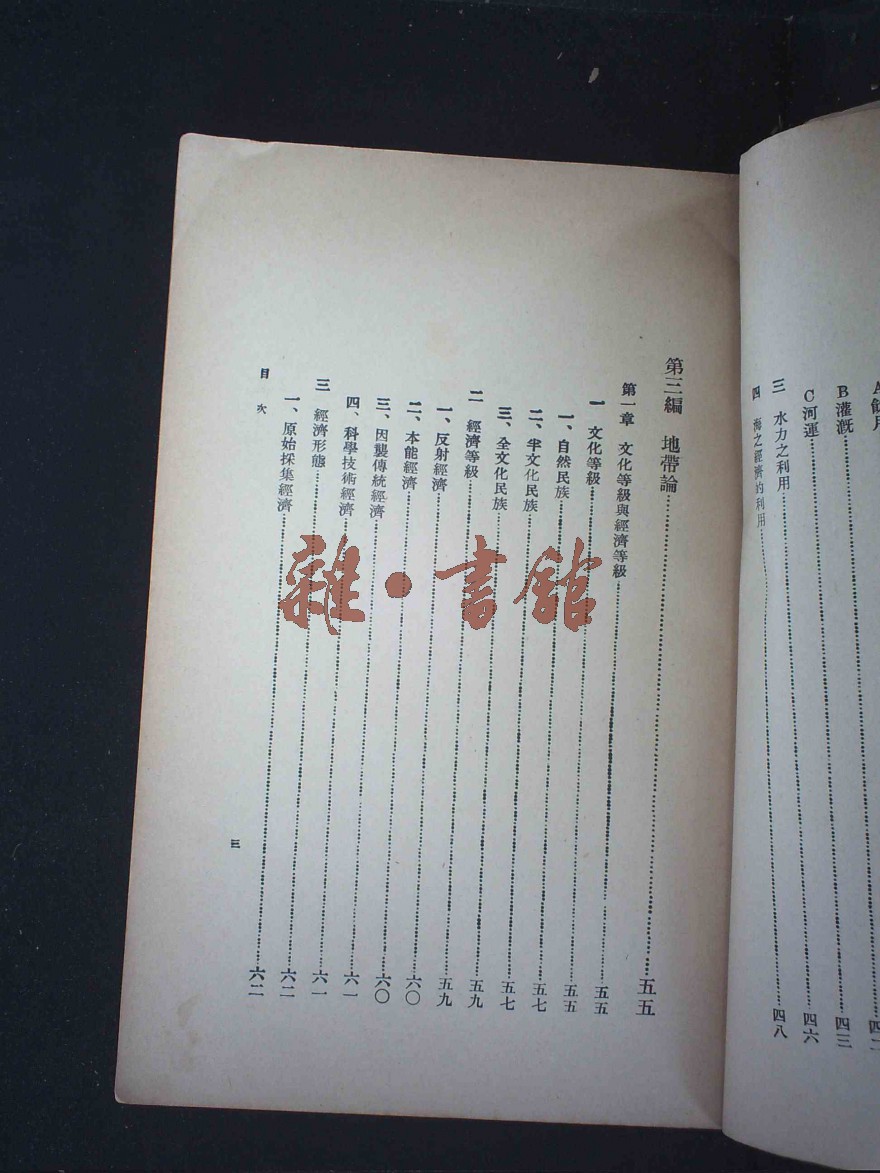 B灌漑……四二
C河運……四三
三 水力之利用……四六
四 海之經濟的利用……四八
第三編 地帶論……五五
第一章 文化等級與經濟等級……五五
一 文化等級……五五
一、自然民族……五七
二、半文化民族……五七
三、全文化民族……五九
二 經濟等級……五九
一、反射經濟……六〇
二、本能經濟……六〇
三、因襲傳統經濟……六一
四、科學技術經濟……六一
三 經濟形態……六二
一、原始採集經濟……六二
目次
三
雜·書館